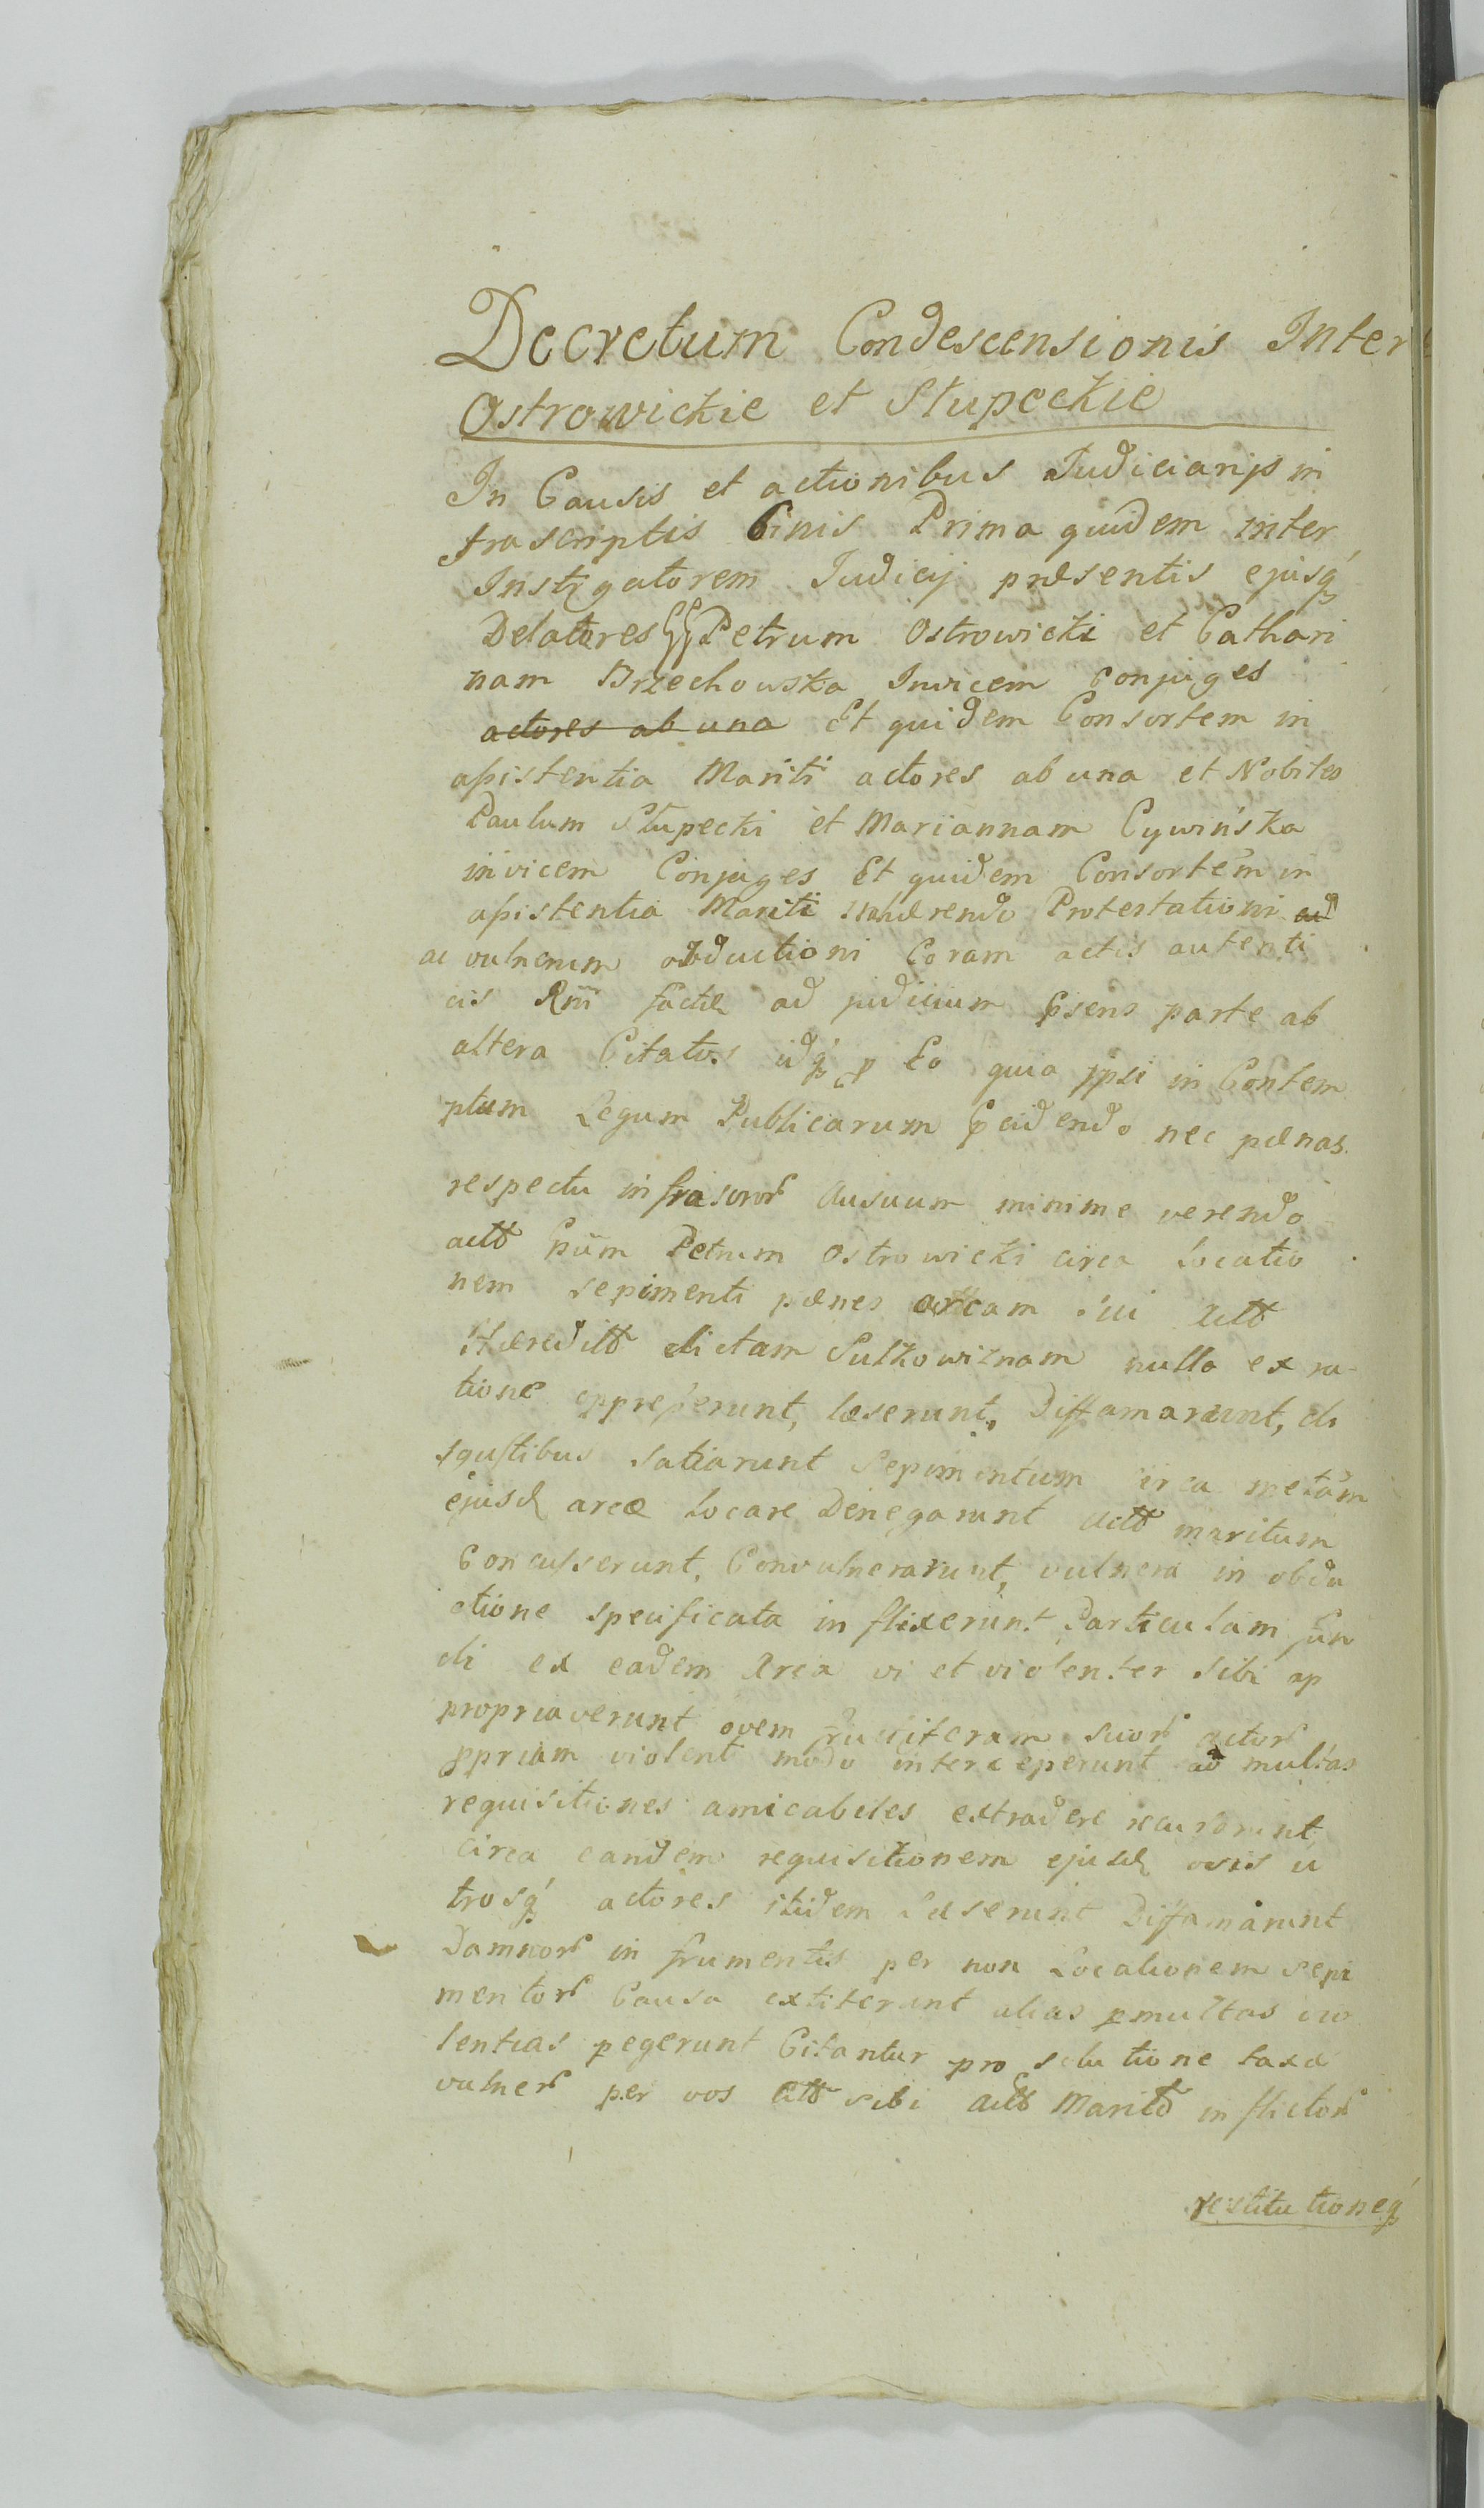 Decretum Condescensionis Inter
Ostrowickie et Słupeckie
In Causis et actionibus Judiciarijs in
frascriptis binis Prima quidem inter
Instigatorem Judicij præsentis ejusq́
Delatores GG Petrum Ostrowicki et Cathari
nam Brzechowska Invicem Conjuges
actores ab una Et quidem Consortem in
assistentia Mariti actores ab una et Nobiles
Paulum Słupecki et Mariannam Cywińska
invicem Conjuges Et quidem Consortem in
assistentia Mariti inhærendo Protestationi ad
ac vulnerum obductioni Coram actis autenti
cis Rñi factæ ad judicium psens parte ab
altera Citatos idq́ p Eo quia ipsi in Contem
ptum Legum Publicarum pcidendo nec pænas
respectu infrascror Ausuum minime verendo
actt Petrum Ostrowicki circa Locatio
nem sepimenti pænes aream sui Actt
Hæreditt dictam Sulkowiznam nulla ex ra-
tione oppresserunt, læserunt, Diffamarunt, di
sgustibus satiarunt Sepimentum circa metam
ejusd areæ Locare Denegarunt Actt maritum
Concusserunt, Convulnerarunt, vulnera in obdu
ctione specificata inflixerunt Particulam fun
di ex eadem Area vi et violenter sibi ap
propriaverunt ovem fructiferam suor actor
ppriam violent modo interceperunt ad multas
requisitiones amicabiles extradere recusarunt
circa eandem requisitionem ejusd ovis u
trosq́ actores itidem Læserunt Diffamarunt
Damnor in frumentis per non Locationem sepi
mentor Causa extiterunt alias pmultas vio
lentias pegerunt Citantur pro solutione taxæ
vulner per vos Citt sibi Actt Maritt inflictor
restitutioneq́